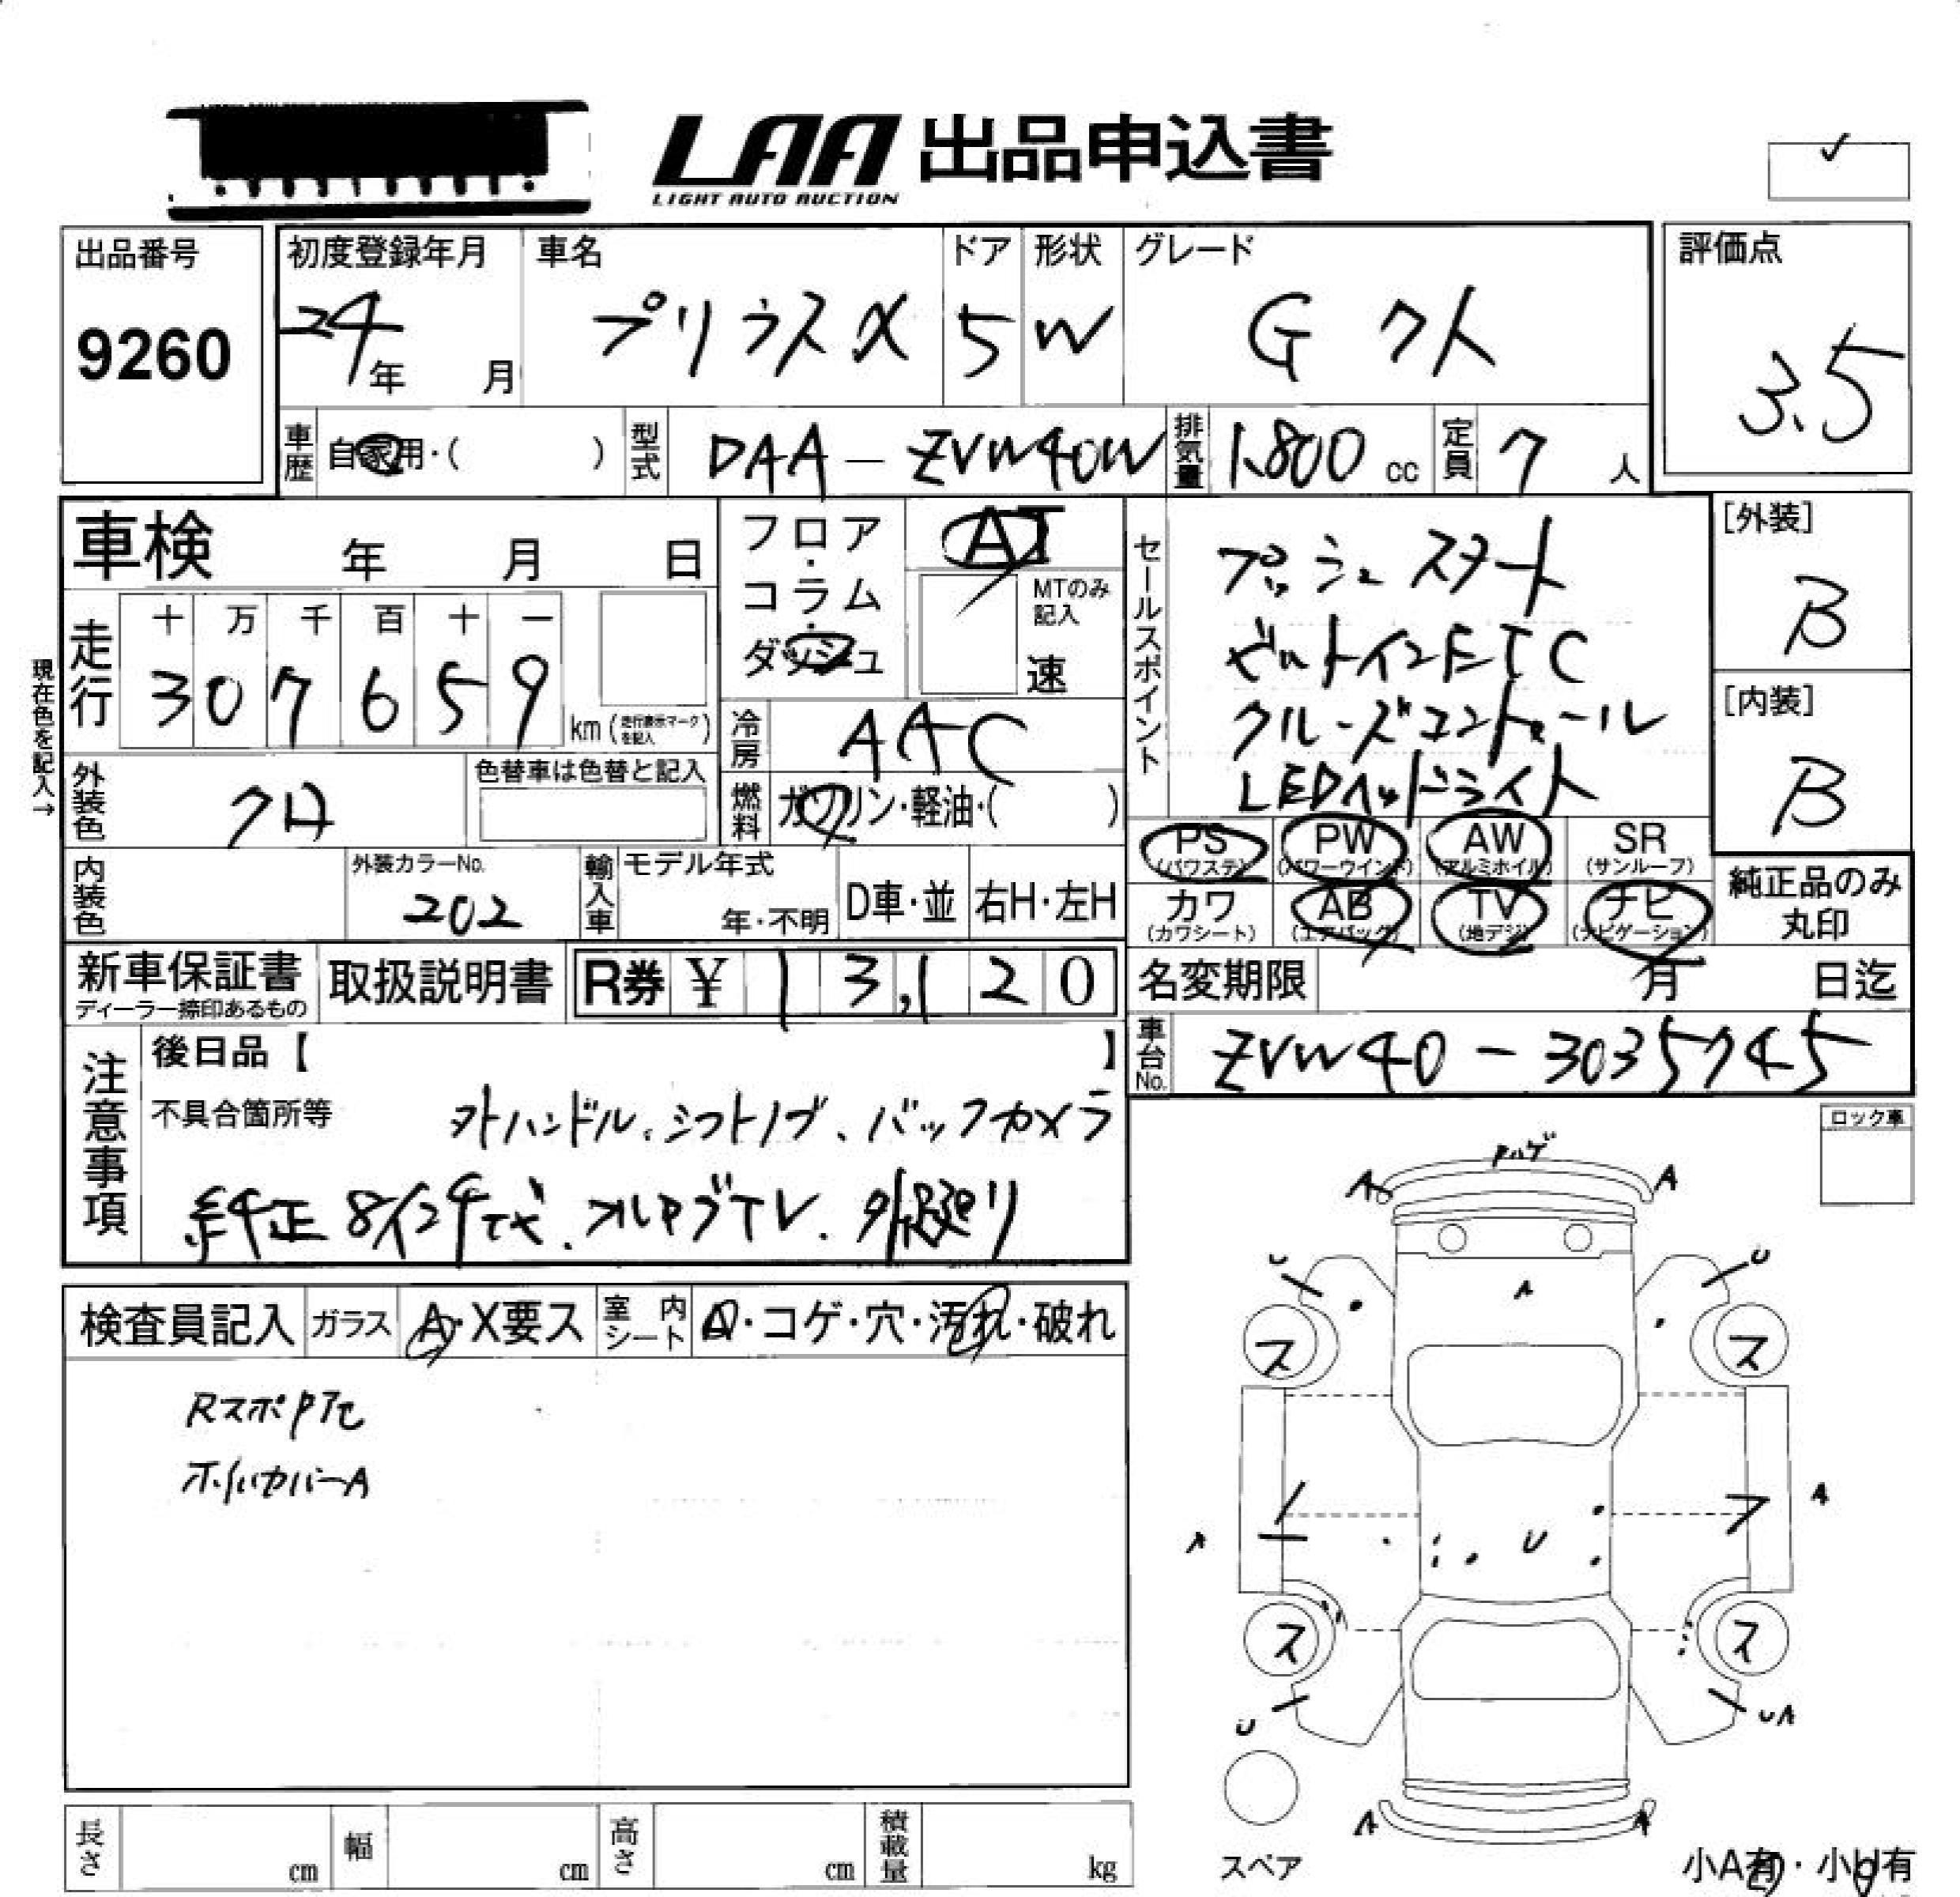 LAA 出品申込書
LIGHT AUTO AUCTION
✓
出品番号
9260
初度登録年月
24年 月
車名
プリウスα
ドア
5
形状
W
グレード
G クト
評価点
3.5
車歴 自家用・( )
型式 DAA-ZVW40W
排気量 1,800 cc
定員 7 人
車検 年 月 日
フロア・コラム・ダッシュ
AT
MTのみ記入
速
セールスポイント
プッシュスタート
ビルトインETC
クルーズコントロール
LEDヘッドライト
[外装]
B
[内装]
B
現在色を記入→
走行
十 万 千 百 十 一
3 0 7 6 5 9
km (走行表示マークを記入)
冷房 AAC
外装色 クロ
色替車は色替と記入
燃料 ガソリン・軽油・( )
PS (パワステ) PW (パワーウインド) AW (アルミホイル) SR (サンルーフ)
カワ (カワシート) AB (エアバッグ) TV (地デジ) ナビ (ナビゲーション)
純正品のみ丸印
内装色
外装カラーNo.
202
輸入車 モデル年式
年・不明
D車・並 右H・左H
新車保証書
ディーラー捺印あるもの
取扱説明書
R券 ¥ 13,120
名変期限 月 日迄
車台No. ZVW40-3035745
注意事項
後日品【 】
不具合箇所等
外ハンドル、シフトノブ、バックカメラ
純正 8インチナビ、フルセグTV、
ロック車
検査員記入 ガラス A・X要ス 室内シート A・コゲ・穴・汚れ・破れ
Rスポ
ホイルカバーA
ハゲ
A A
U U
A
ス ス
A
A U
ス ス
U UA
A A
スペア
小A有・小U有
長さ cm 幅 cm 高さ cm 積載量 kg